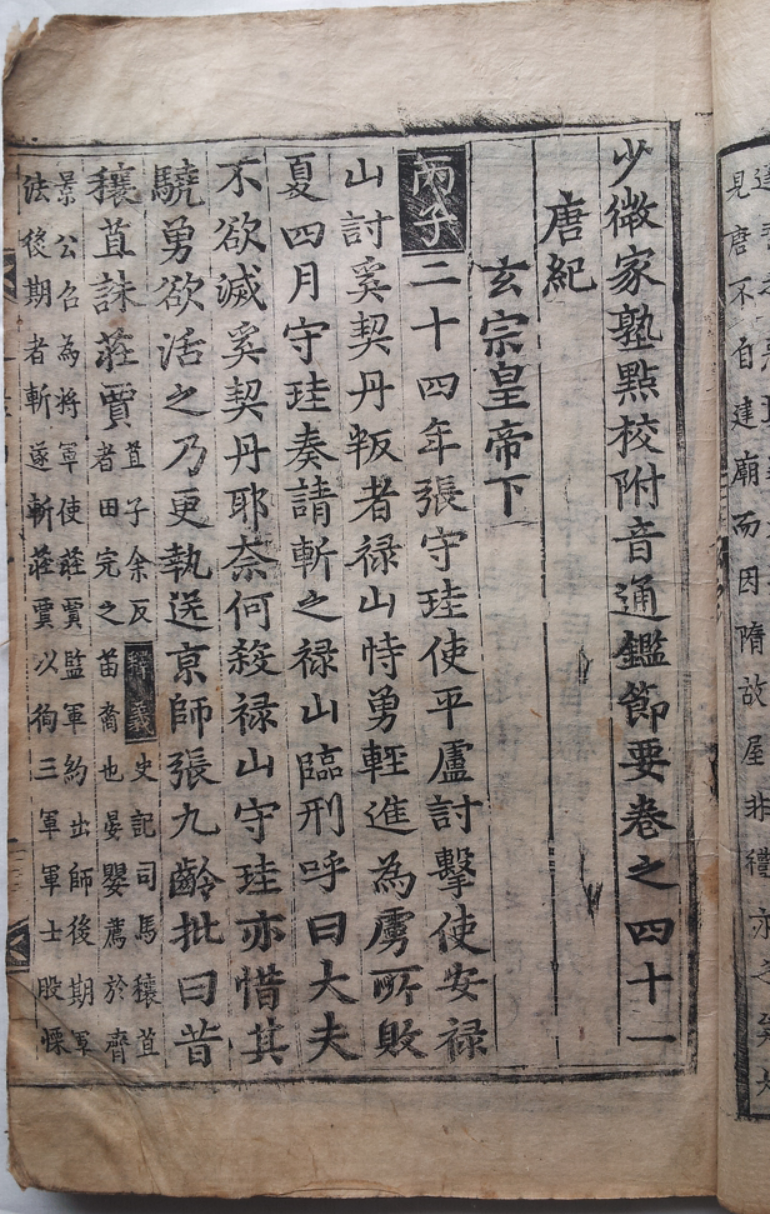 見唐不自建廟而因隋故屋非禮亦
少微家塾點校附音通鑑節要卷之四十一
唐紀
玄宗皇帝下
丙子二十四年張守珪使平盧討擊使安禄
山討奚契丹叛者禄山恃勇輕進為虜所敗
夏四月守珪奏請斬之禄山臨刑呼曰大夫
不欲滅奚契丹耶奈何殺禄山守珪亦惜其
驍勇欲活之乃更執送京師張九齡批曰昔
穰苴誅莊賈
苴子余反釋義史記司馬穰苴
者田完之苗裔也晏嬰薦於齊
景公召為將軍使莊賈監軍約出師後期軍
法後期者斬遂斬莊賈以徇三軍軍士股慄